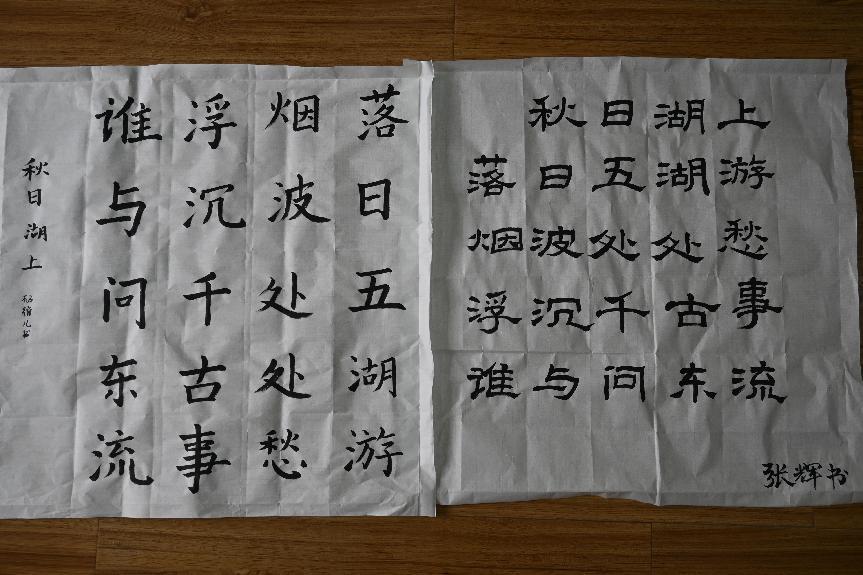 落日五湖游
烟波处处愁
浮沉千古事
谁与问东流
秋日湖上
秋日湖上
落日五湖游
烟波处处愁
浮沉千古事
谁与问东流
张辉书